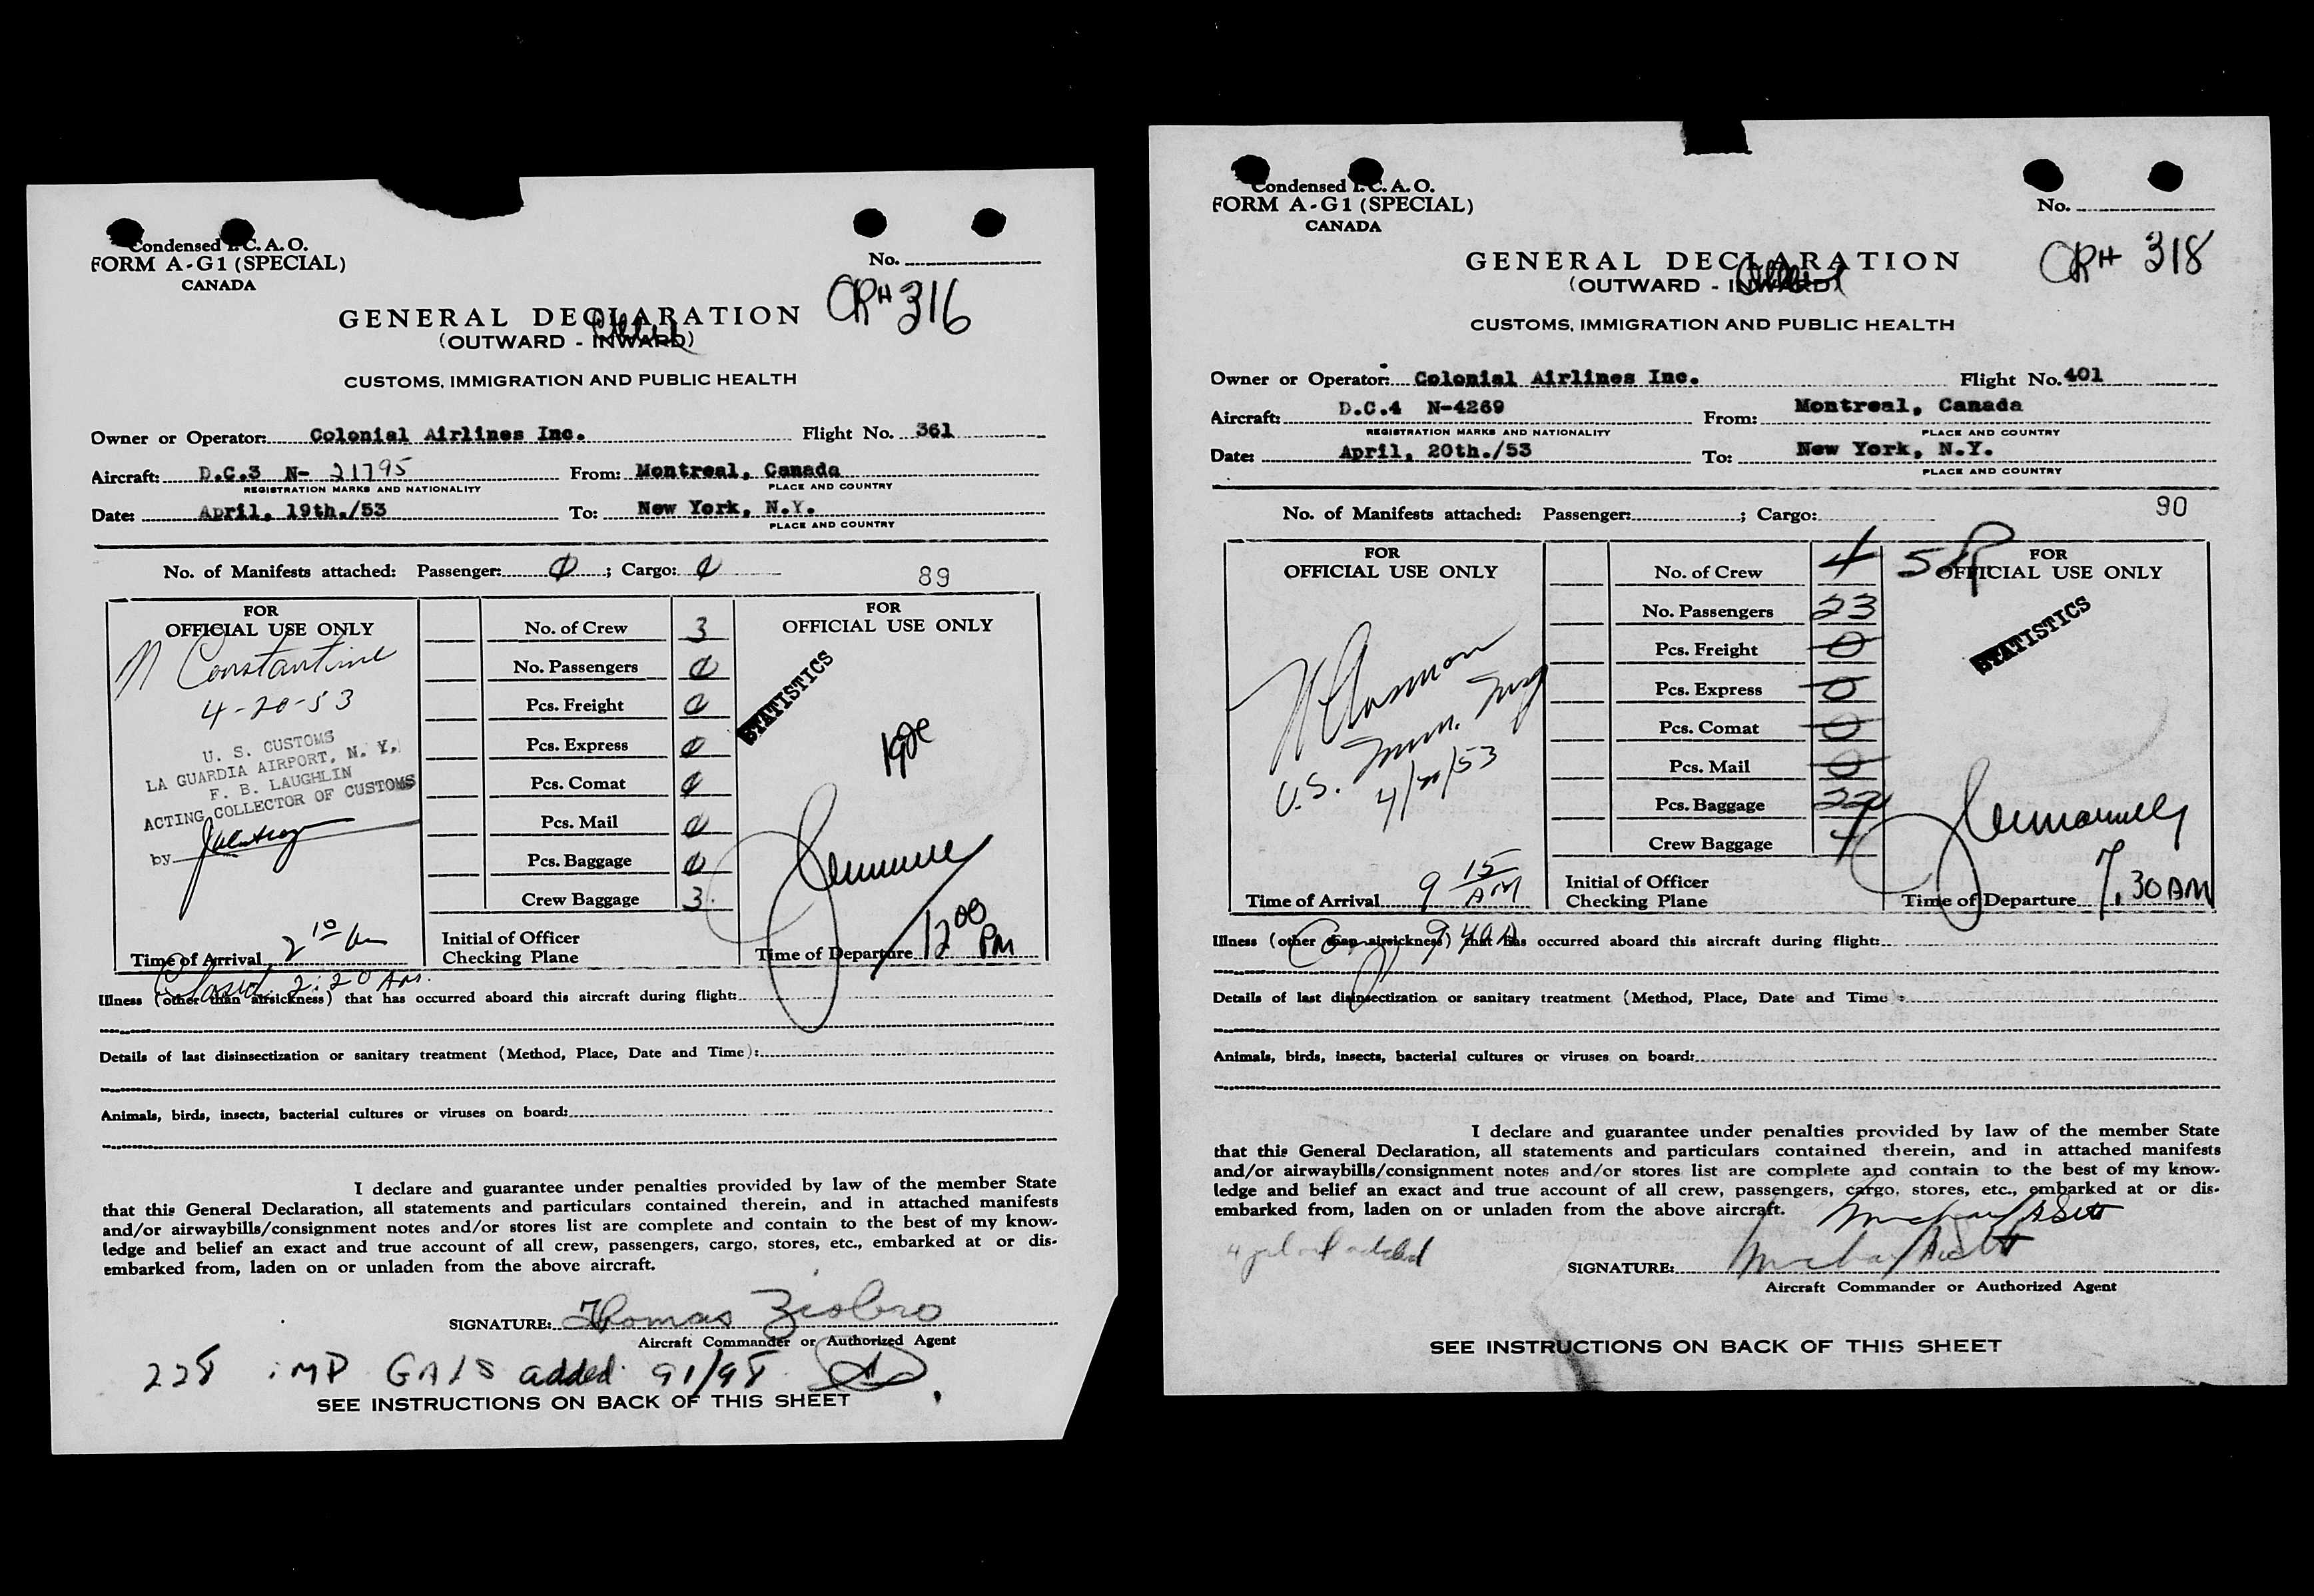 Condensed I.C.A.O.
FORM A-G1 (SPECIAL)
CANADA
No.
CRH 316
GENERAL DECLARATION
(OUTWARD - INWARD)
CUSTOMS, IMMIGRATION AND PUBLIC HEALTH
Owner or Operator: Colonial Airlines Inc. Flight No. 361
Aircraft: D.C.3 N- 21795 From: Montreal, Canada
REGISTRATION MARKS AND NATIONALITY PLACE AND COUNTRY
Date: April, 19th./53 To: New York, N.Y.
PLACE AND COUNTRY
No. of Manifests attached: Passenger: 0; Cargo: 0
89
FOR
OFFICIAL USE ONLY
N Constantine
4-20-53
U. S. CUSTOMS
LA GUARDIA AIRPORT, N. Y.
F. B. LAUGHLIN
ACTING COLLECTOR OF CUSTOMS
by
Time of Arrival 2 10 Am
Closed 2:20 Am.
No. of Crew 3
No. Passengers 0
Pcs. Freight 0
Pcs. Express 0
Pcs. Comat 0
Pcs. Mail 0
Pcs. Baggage 0
Crew Baggage 3
Initial of Officer
Checking Plane
FOR
OFFICIAL USE ONLY
STATISTICS
Time of Departure 12 00 PM
Illness (other than airsickness) that has occurred aboard this aircraft during flight:
Details of last disinsectization or sanitary treatment (Method, Place, Date and Time):
Animals, birds, insects, bacterial cultures or viruses on board:
I declare and guarantee under penalties provided by law of the member State
that this General Declaration, all statements and particulars contained therein, and in attached manifests
and/or airwaybills/consignment notes and/or stores list are complete and contain to the best of my know-
ledge and belief an exact and true account of all crew, passengers, cargo, stores, etc., embarked at or dis-
embarked from, laden on or unladen from the above aircraft.
SIGNATURE: Thomas Ziobro
Aircraft Commander or Authorized Agent
228 IMP GALS added 91/98
SEE INSTRUCTIONS ON BACK OF THIS SHEET
Condensed I.C.A.O.
FORM A-G1 (SPECIAL)
CANADA
No.
CRH 318
GENERAL DECLARATION
(OUTWARD - INWARD)
CUSTOMS, IMMIGRATION AND PUBLIC HEALTH
Owner or Operator: Colonial Airlines Inc. Flight No. 401
Aircraft: D.C.4 N-4269 From: Montreal, Canada
REGISTRATION MARKS AND NATIONALITY PLACE AND COUNTRY
Date: April, 20th./53 To: New York, N.Y.
PLACE AND COUNTRY
90
No. of Manifests attached: Passenger: ; Cargo:
FOR
OFFICIAL USE ONLY
U.S. Imm. Insp
4/20/53
Time of Arrival 9 15 AM
No. of Crew 4 5
No. Passengers 23
Pcs. Freight 0
Pcs. Express 0
Pcs. Comat 0
Pcs. Mail 0
Pcs. Baggage 22
Crew Baggage 4
Initial of Officer
Checking Plane
FOR
OFFICIAL USE ONLY
STATISTICS
Time of Departure 7.30 AM
Illness (other than airsickness) that has occurred aboard this aircraft during flight:
9 40 A
Details of last disinsectization or sanitary treatment (Method, Place, Date and Time):
Animals, birds, insects, bacterial cultures or viruses on board:
I declare and guarantee under penalties provided by law of the member State
that this General Declaration, all statements and particulars contained therein, and in attached manifests
and/or airwaybills/consignment notes and/or stores list are complete and contain to the best of my know-
ledge and belief an exact and true account of all crew, passengers, cargo, stores, etc., embarked at or dis-
embarked from, laden on or unladen from the above aircraft.
added
SIGNATURE:
Aircraft Commander or Authorized Agent
SEE INSTRUCTIONS ON BACK OF THIS SHEET